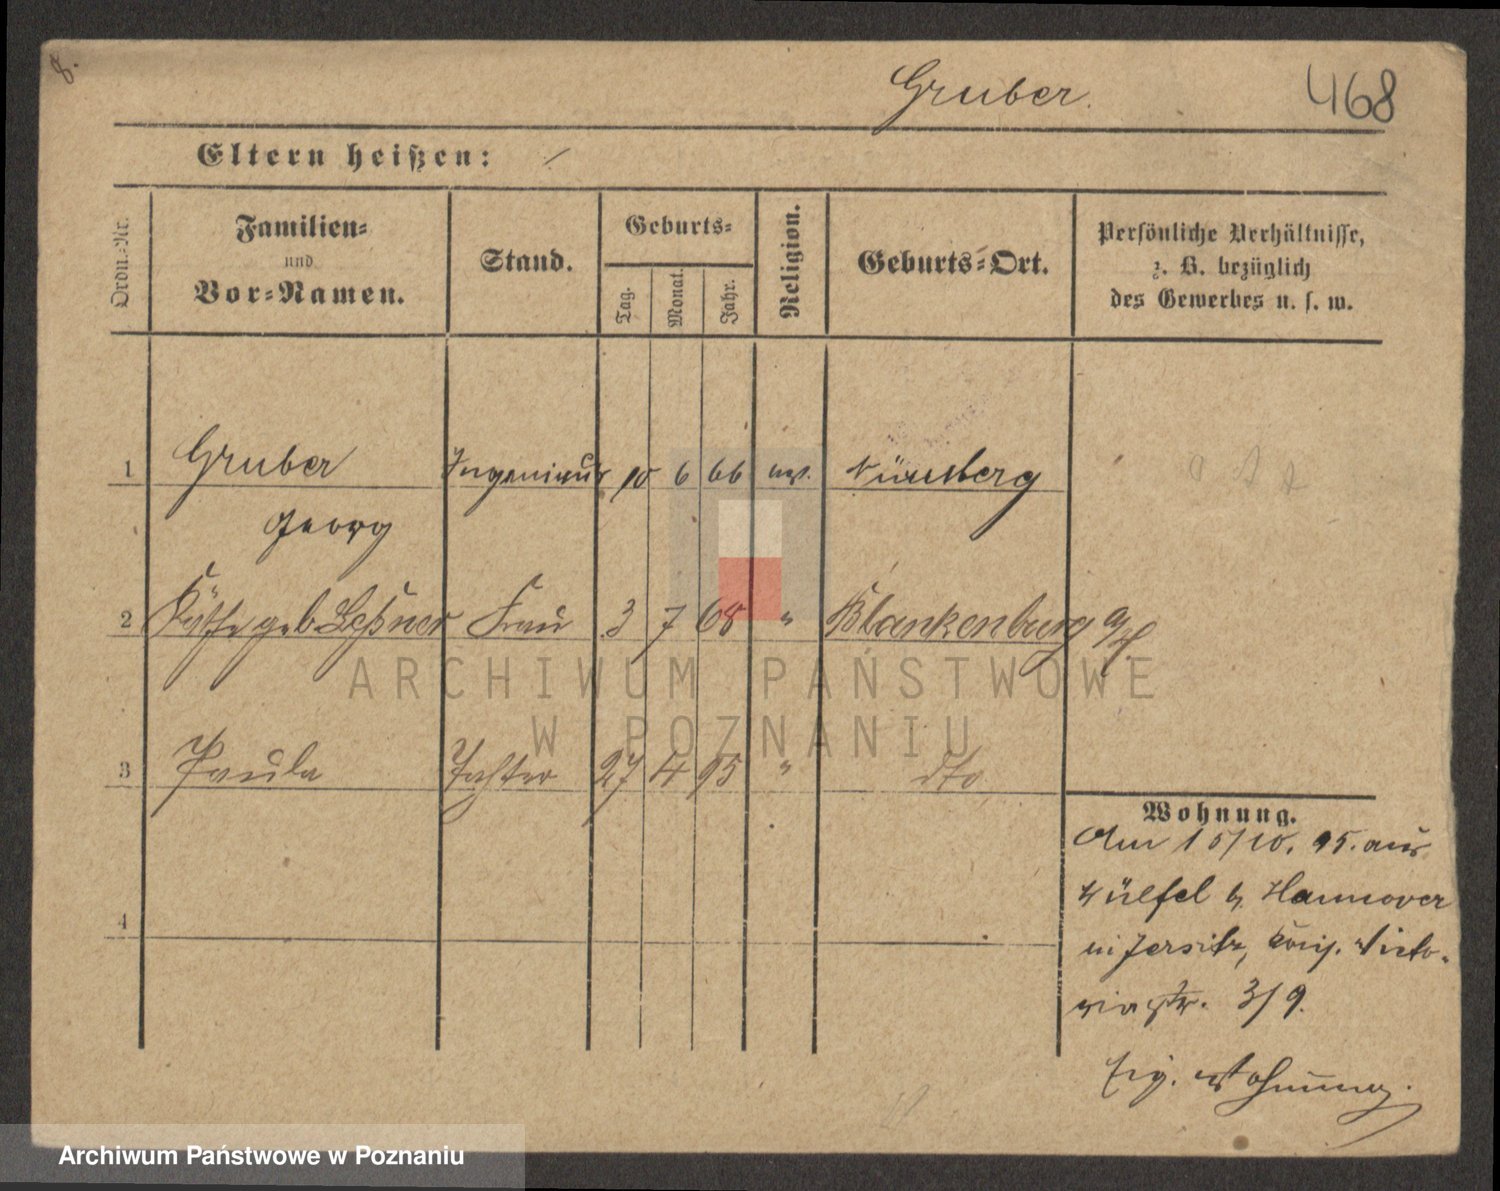 8.
Gruber.
468
Eltern heißen:
Ordn.-Nr.
Familien-
und
Vor-Namen.
Stand.
Geburts-
Tag.
Monat.
Jahr.
Religion.
Geburts-Ort.
Persönliche Verhältnisse,
z. B. bezüglich
des Gewerbes u. s. w.
1 Gruber Ingenieur 10 6 66 Nürnberg
Georg
2 Käthe geb Leßner Frau 3 7 68 " Blankenburg a/H
ARCHIWUM PAŃSTWOWE
W POZNANIU
3 Paula Tochter 27 4 95 " dto
Wohnung.
Am 15/10. 95. aus
Wülfel b. Hannover
in Jersitz, König. Victo-
riastr. 3/9.
4
Eig. Wohnung.
Archiwum Państwowe w Poznaniu